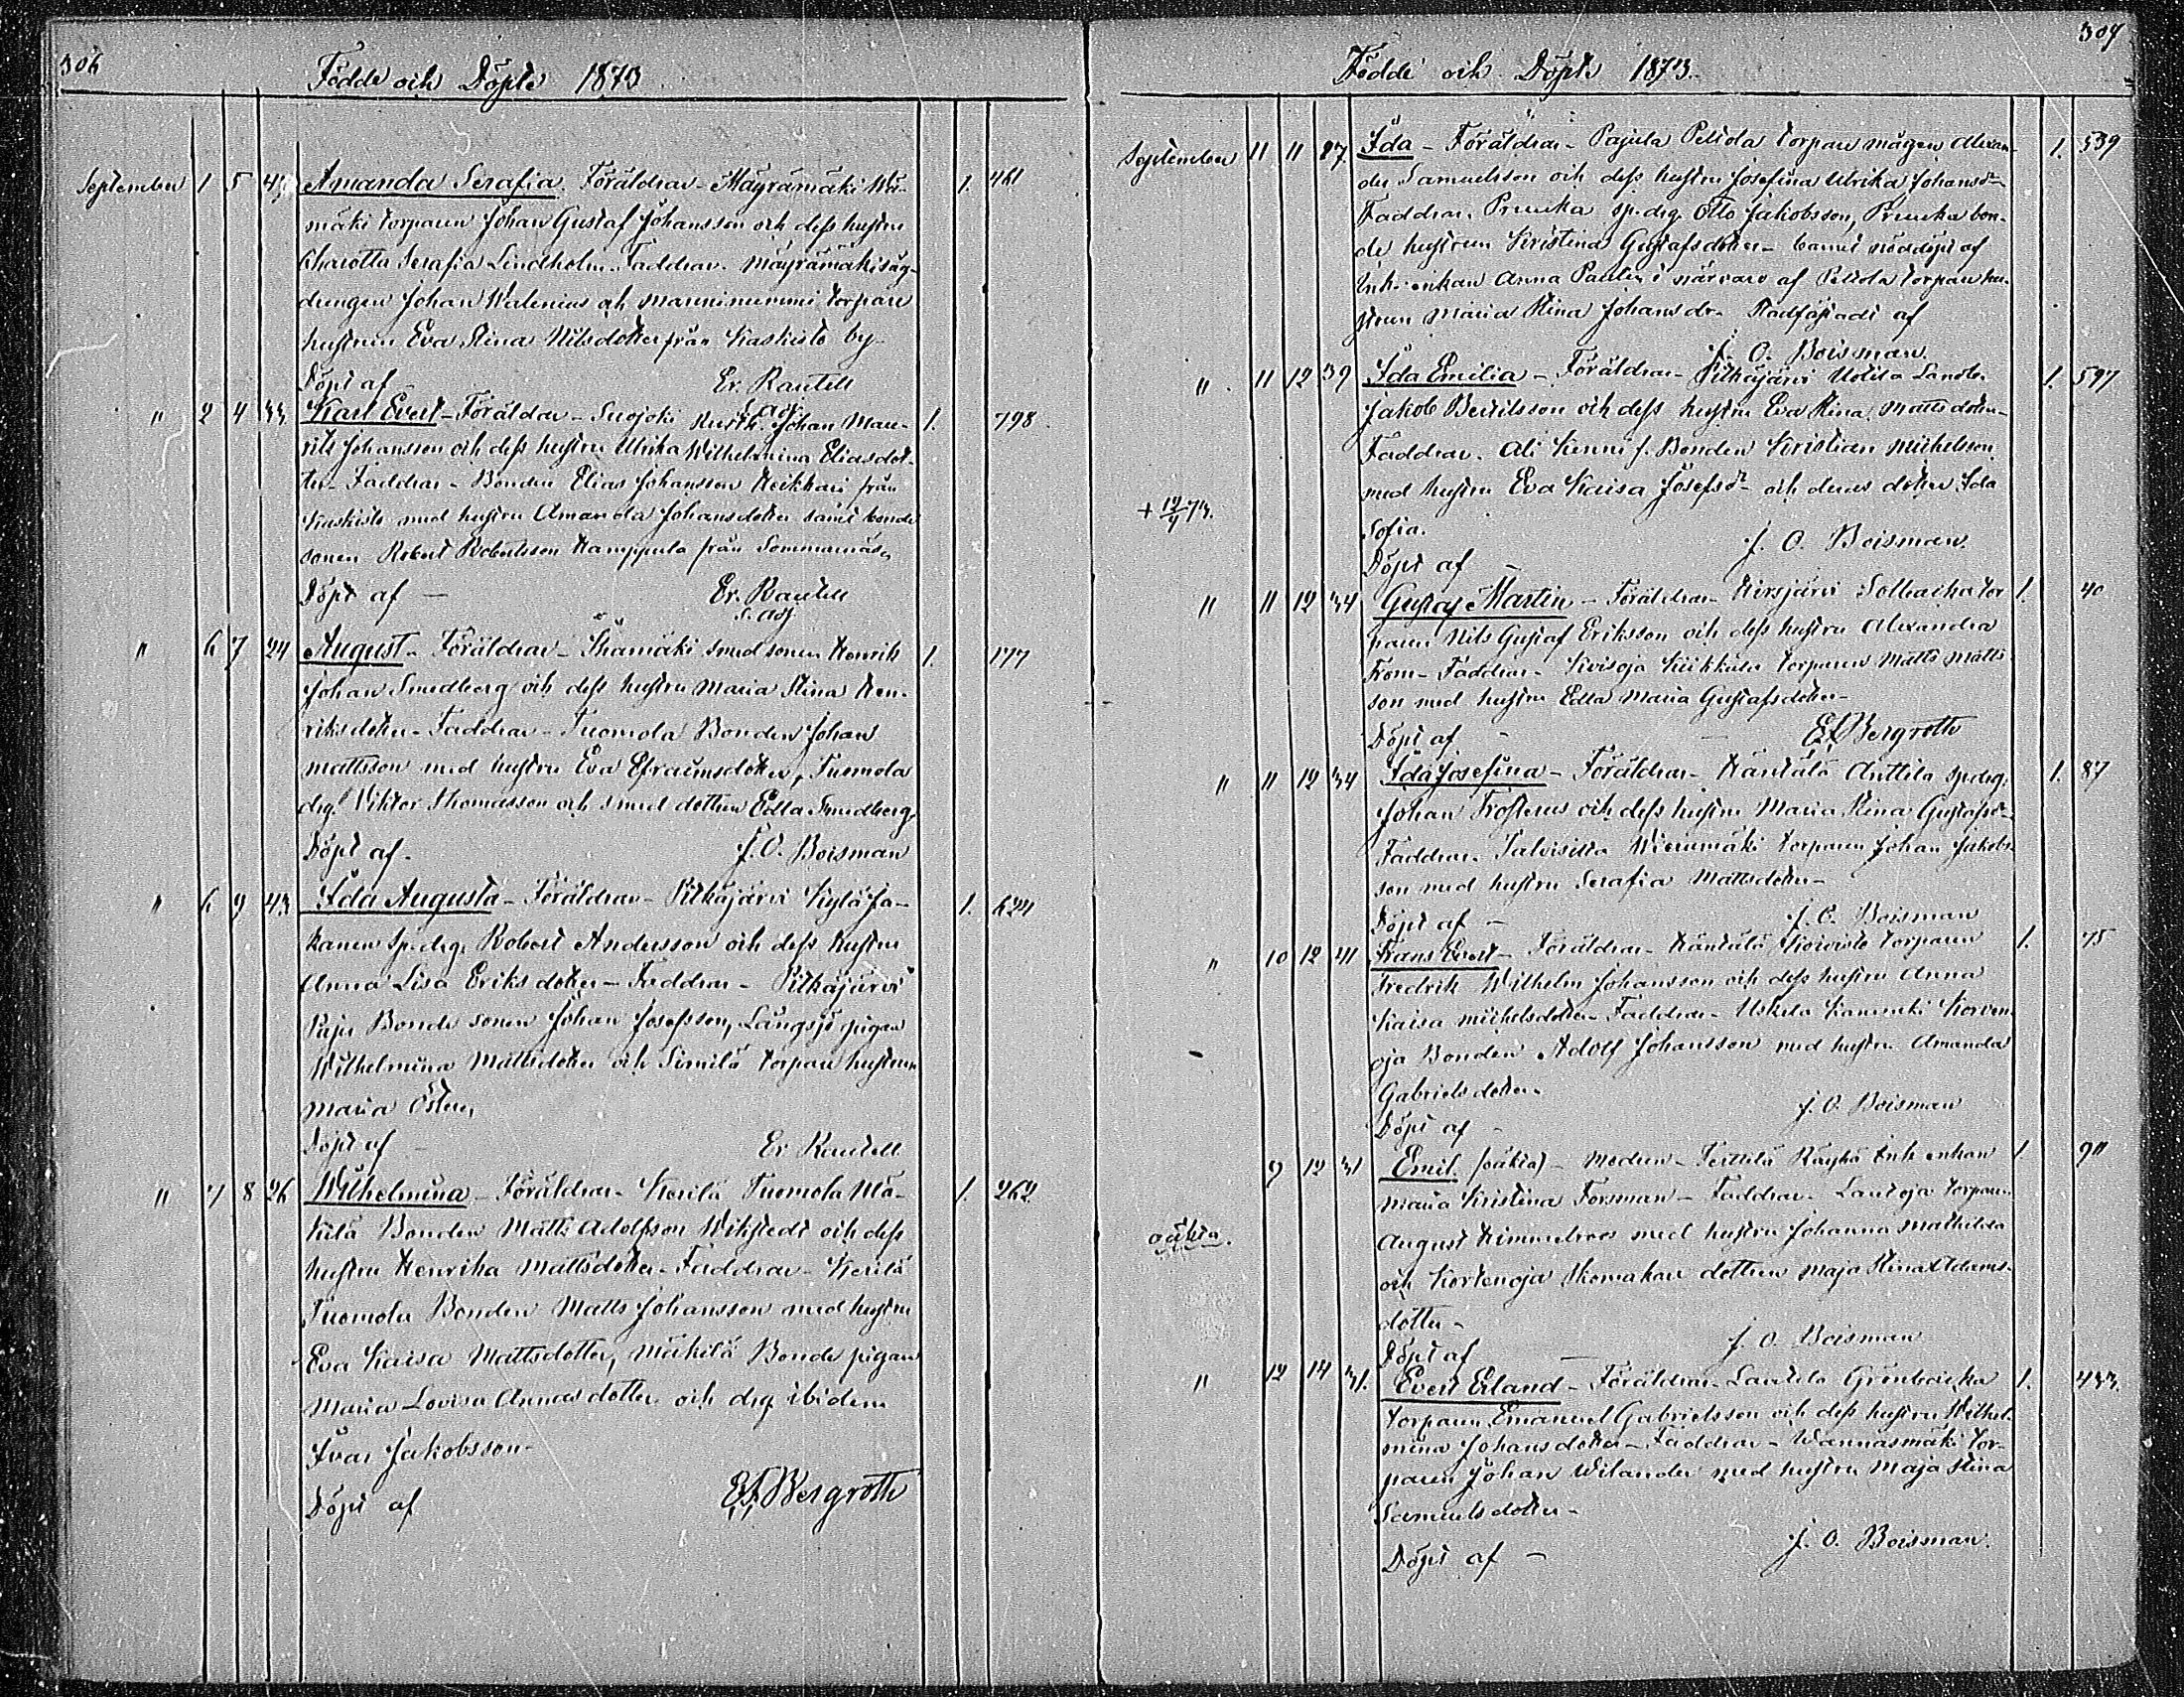 306
Födde och Döpte 1873
September 1 5 43 Amanda Serafia. Föräldrar - Mäyrämäki
mäki torparen Johan Gustaf Johansson och dess hustru
Charotta Serafia Lindholm. Faddrar. Mäyrämäki säg-
drengen Johan Walenius och Manninummi torpare
hustrun Eva Stina Nilsdotter från Kaskisto by.
1. 461
Döpt af Er. Rautell
s. adj.
" 2 4 33 Karl Evert - Föräldar - Suojoki Johan Mau-
ritz Johansson och dess hustru Ulrika Wilhelmina Eliasdot-
ter - Faddrar - Bonden Elias Johansson Heikkari från
Kaskisto med hustru Amanda Johansdotter samt bonde
sonen Robert Robertsson Kamppula från Sommarnäs
1. 798.
Döpt af - Er. Rautell
s. adj.
" 6 7 24 August - Föräldrar - Ihamäki smed sonen Henrik
Johan Smedberg och dess hustru Maria Stina Hen-
riksdotter - Faddrar - Tuomola Bonden Johan
Mattsson med hustru Eva Efraimsdotter, Tuomola
drg. Viktor Thomasson och smed dottren Edla Smedberg,
1. 177
Döpt af. J. O. Boisman
" 6 9 43 Ida Augusta - Föräldrar - Pitkäjärvi Kylä Ja-
kanen sp. drg. Robert Andersson och dess hustru
Anna Lisa Eriksdotter - Faddrar - Pitkäjärvi
Paju Bonde sonen Johan Josefsson, Långsjö pigan
Wilhelmina Mattsdotter och Simila torpare hustrun
Maria Öster,
1. 624
Döpt af - Er Rautell
" 7 8 26 Wilhelmina - Föräldrar - Kerilä Tuomola Mä-
kilä Bonden Matts Adolfsson Wikstedt och dess
hustru Henrika Mattsdotter - Faddrar - Kerilä
Tuomola Bonden Matts Johansson med hustru
Eva Kaisa Mattsdotter, Mäkilä Bonde pigan
Maria Lovisa Annasdotter och drg ibidem
Ivar Jakobsson -
1. 262
Döpt af E. F. Bergroth
307
Födde och Döpte 1873.
September 11 11 27. Ida - Föräldrar - Pajula Peltola torpare mågen Alexan-
der Samuelsson och dess hustru Josefina Ulrika Johansdr
Faddrar. Pruuka sp. drg. Otto Jakobsson, Pruuka bon-
de hustrun Kristina Gustafsdotter - barnet nöddöpt af
Enk. enkan Anna i närvaro af Peltola torpare hu-
strun Maria Stina Johansdr - Stadfästadt af
1. 539
J. O. Boisman.
" 11 12 39 Ida Emilia - Föräldrar - Pitkäjärvi Uotila Landb.
Jakob Bertilsson och dess hustru Eva Stina Mattsdotter -
Faddrar. Ali Kenni f. Bonden Kristian Michelsson
med hustru Eva Kaisa Josefsdr och deras dotter Ida
Sofia.
1. 597
+ 19/9 73.
Döpt af - J. O. Boisman.
" 11 12 34 Gustaf Martin - Föräldrar - Hirsjärvi Solbacka tor
paren Nils Gustaf Eriksson och dess hustru Alexandra
Fom - Faddrar - Kivisoja Kiikkala torparen Matts Matts-
son med hustru Edla Maria Gustafsdotter -
1. 40
Döpt af - E. F. Bergroth
" 11 12 34 Ida Josefina - Föräldrar - Häntälä Anttila sp. drg.
Johan Frosterus och dess hustru Maria Stina Gustafsdr -
Faddrar. Talvisilta Wierumäki torparen Johan Jakobs-
son med hustru Serafia Mattsdotter -
1. 87
Döpt af - J. O. Boisman
" 10 12 41 Frans Evert - Föräldrar - Häntälä Koivisto torparen
Fredrik Wilhelm Johansson och dess hustru Anna
Kaisa Michelsdotter - Faddrar - Uskela Kaninki Korven
oja Bonden Adolf Johansson med hustru Amanda
Gabrielsdotter.
1. 75
Döpt af - J. O. Boisman
9 12 31 Emil. (oäkta) - Modren - Terttilä Räyhä Enk enkan
Maria Kristina Forsman - Faddrar - Lautoja torparen
August Himmelroos med hustru Johanna Mathilda
och Kortenoja skomakare dottren Maja Stina Adams-
dotter -
1 90
oäkta.
Döpt af - J. O. Boisman
" 12 14 31. Evert Erland - Föräldrar - Lautela Grönbacka
torparen Emanuel Gabrielsson och dess hustru Wilhel-
mina Johansdotter - Faddrar - Wannasmäki tor-
paren Johan Wilander med hustru Maja Stina
Samuelsdotter -
1. 433.
Döpt af - J. O. Boisman.